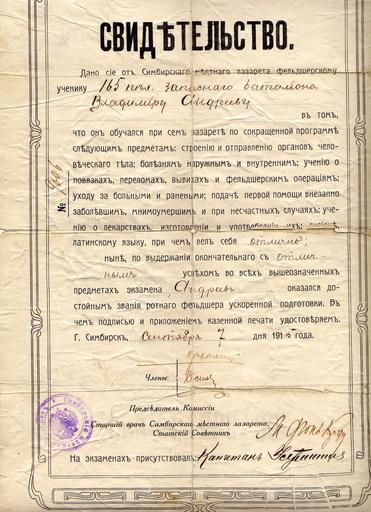 СВИДѢТЕЛЬСТВО.
Дано сіе отъ Симбирскаго мѣстнаго лазарета фельдшерскому
ученику 165 пѣх. запаснаго баталіона
Владиміру Андрееву
въ томъ,
что онъ обучался при семъ лазаретѣ по сокращенной программѣ
слѣдующимъ предметамъ: строенію и отправленію органовъ чело-
вѣческаго тѣла; болѣзнямъ наружнымъ и внутреннимъ; ученію о
повязкахъ, переломахъ, вывихахъ и фельдшерскимъ операціямъ;
уходу за больными и ранеными; подачѣ первой помощи внезапно
заболѣвшимъ, мнимоумершимъ и при несчастныхъ случаяхъ; уче-
нію о лекарствахъ, изготовленіи и употребленіи ихъ;
латинскому языку, при чемъ велъ себя отлично;
нынѣ, по выдержаніи окончательнаго съ отлич-
нымъ успѣхомъ во всѣхъ вышеозначенныхъ
предметахъ экзамена Андреевъ оказался до-
стойнымъ званія ротнаго фельдшера ускоренной подготовки. Въ
чемъ подписью и приложеніемъ казенной печати удостовѣряемъ.
Г. Симбирскъ, Сентября 7 дня 1915 года.
Члены:
Предсѣдатель Комиссіи
Старшій врачъ Симбирскаго мѣстнаго лазарета,
Статскій Совѣтникъ
На экзаменахъ присутствовалъ: Капитанъ
№